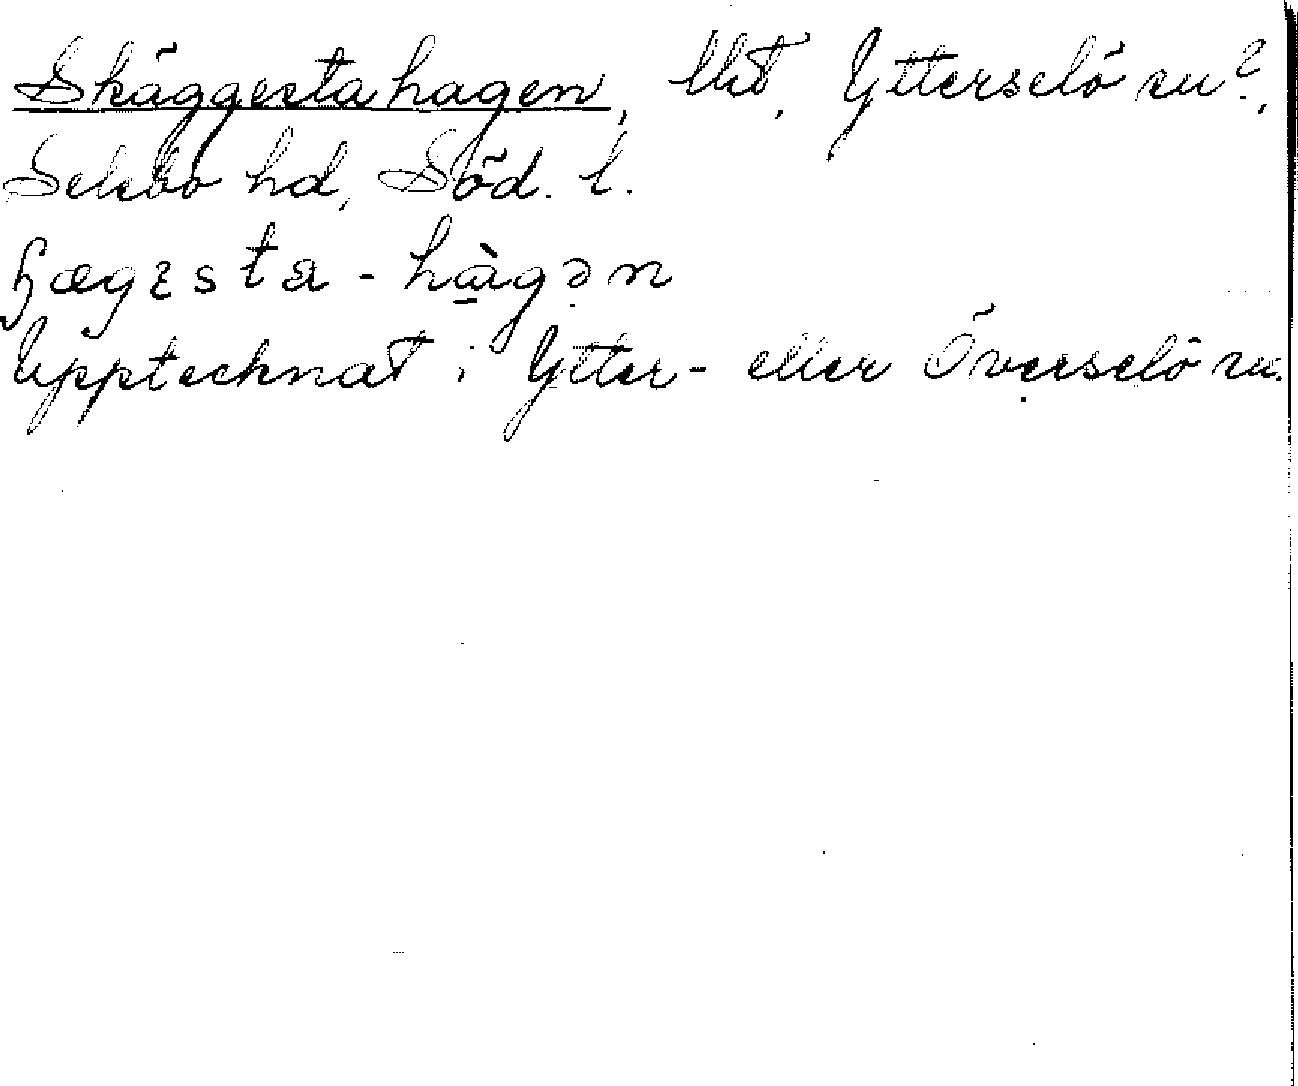 Skäggestahagen, Ute, Ytterselö sn?,
Selebo hd, Söd. l.
ɧægɛsta - hàgən
Upptecknat i Ytter- eller Överselö sn.